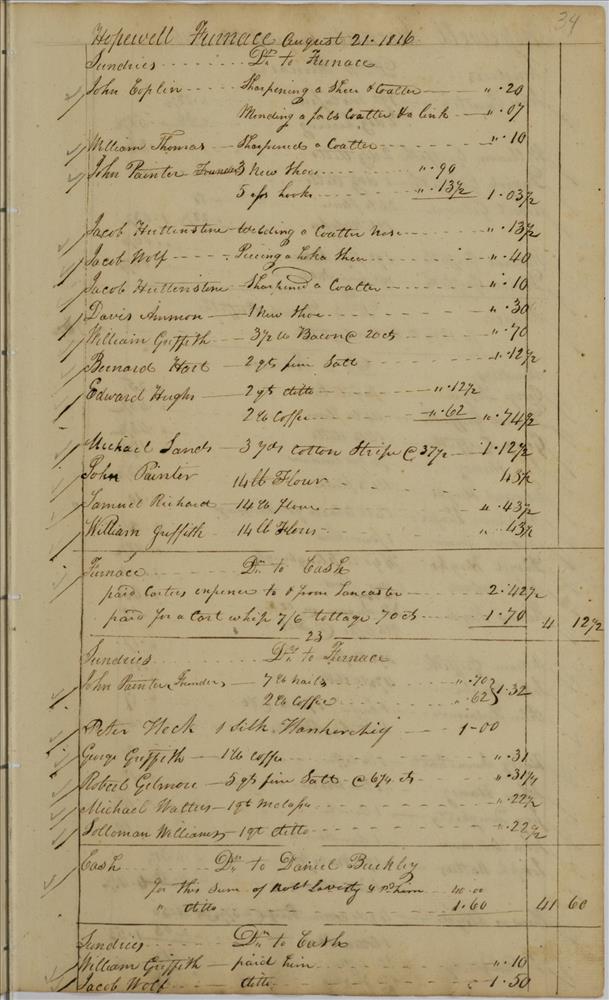 34
Hopewell Furnace August 21. 1816
Sundries Drs to Furnace
John Coplin Sharpening a Shear & Coatter " . 20
Mending a Coatter & a link " . 07
William Thomas Sharpened a Coatter " . 10
John Painter Founder 3 New Shoes " . 90
5 hooks " . 13 1/2 1.03 1/2
Jacob Huttenstine Welding a Coatter nose " . 13 1/2
Jacob Wolf Piecing a Shear " . 40
Jacob Huttenstine Sharpened a Coatter " . 10
Davis Ammon 1 New Shoe " . 30
William Griffith 3 1/2 lb Bacon @ 20 cts " . 70
Bernard Hart 2 qts fine Salt " . 12 1/2
Edward Hughs 2 qts ditto " . 12 1/2
2 lb Coffee " . 62 " . 74 1/2
Michael Sands 3 yds Cotton Stripe @ 37 1/2 1.12 1/2
John Painter 14 lb Flour 43 1/2
Samuel Richard 14 lb flour " . 43 1/2
William Griffith 14 lb Flour " 43 1/2
Furnace Dr to Cash
paid Carters expences to & from Lancaster 2.42 1/2
paid for a Cart whip 7/6 tollage 70 cts 1.70 4 12 1/2
23
Sundries Drs to Furnace
John Painter Founder 7 lb nails " . 70
2 lb Coffee " . 62 } 1.32
Peter Heck 1 Silk Hankerchif 1-00
George Griffith 1 lb Coffee " . 31
Robert Gilmore 5 qts fine Salt @ 6 1/4 cts " . 31 1/4
Michael Watters 1 qt Molases " . 22 1/2
Solloman Williams 1 qt ditto " . 22 1/2
Cash Dr to Daniel Buckley
for this sum of Robt Laverty & him 40.00
" ditto 1.60 41 60
Sundries Drs to Cash
William Griffith paid him " . 10
Jacob Wolf ditto 1.50